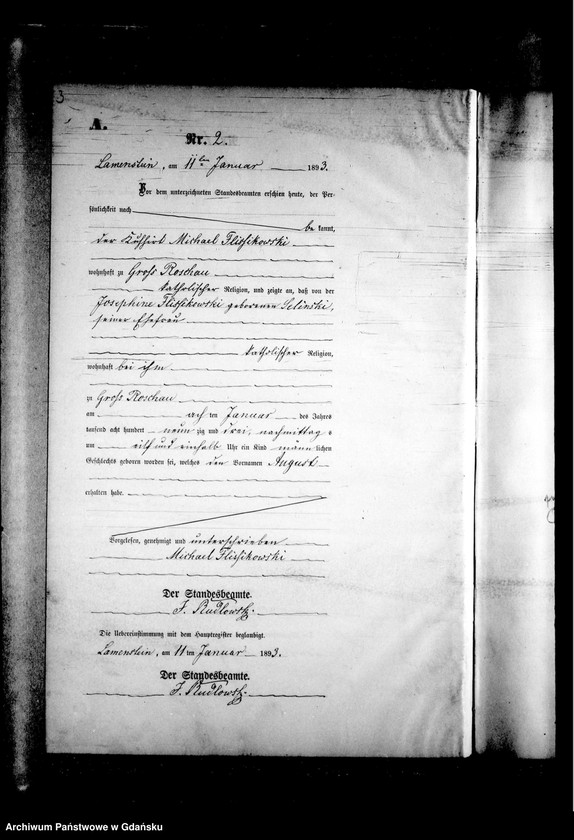 3
A.
Nr. 2.
Lamenstein, am 11ten Januar 1893.
Vor dem unterzeichneten Standesbeamten erschien heute, der Per-
sönlichkeit nach
be kannt,
der Michael Flissikowski
wohnhaft zu Groß Roschau
katholischer Religion, und zeigte an, daß von der
Josephine Flissikowski geborenen Selinski,
seiner Ehefrau
katholischer Religion,
wohnhaft bei ihm
zu Groß Roschau
am ach ten Januar des Jahres
tausend acht hundert neun zig und drei, nachmittag s
um eilf und einhalb Uhr ein Kind männ lichen
Geschlechts geboren worden sei, welches den Vornamen August
erhalten habe.
Vorgelesen, genehmigt und unterschrieben
Michael Flissikowski
Der Standesbeamte.
Die Uebereinstimmung mit dem Hauptregister beglaubigt.
Lamenstein, am 11 ten Januar 1893.
Der Standesbeamte.
Archiwum Państwowe w Gdańsku